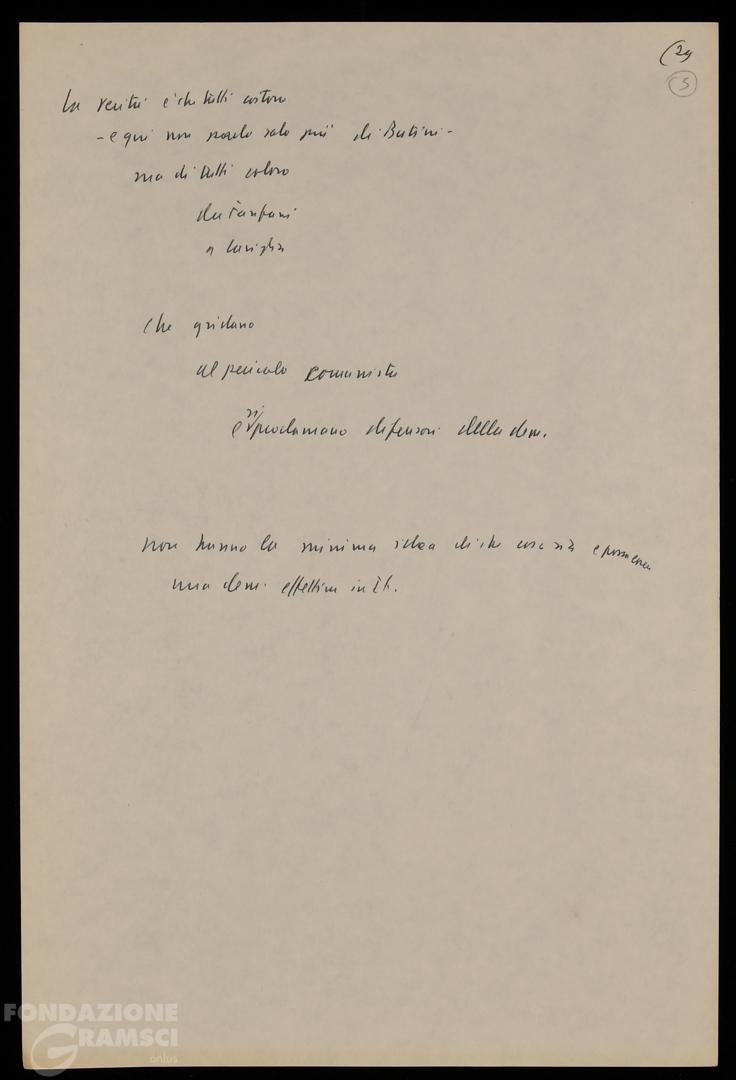 (29
5
La verità è che tutti costoro
- e qui non parlo solo più di Butini -
ma di tutti coloro
da Fanfani
a Cariglia
che gridano
al pericolo comunista
e si proclamano difensori della dem.
non hanno la minima idea di che cosa sia e possa essere
una dem. effettiva in It.
FONDAZIONE
GRAMSCI
onlus